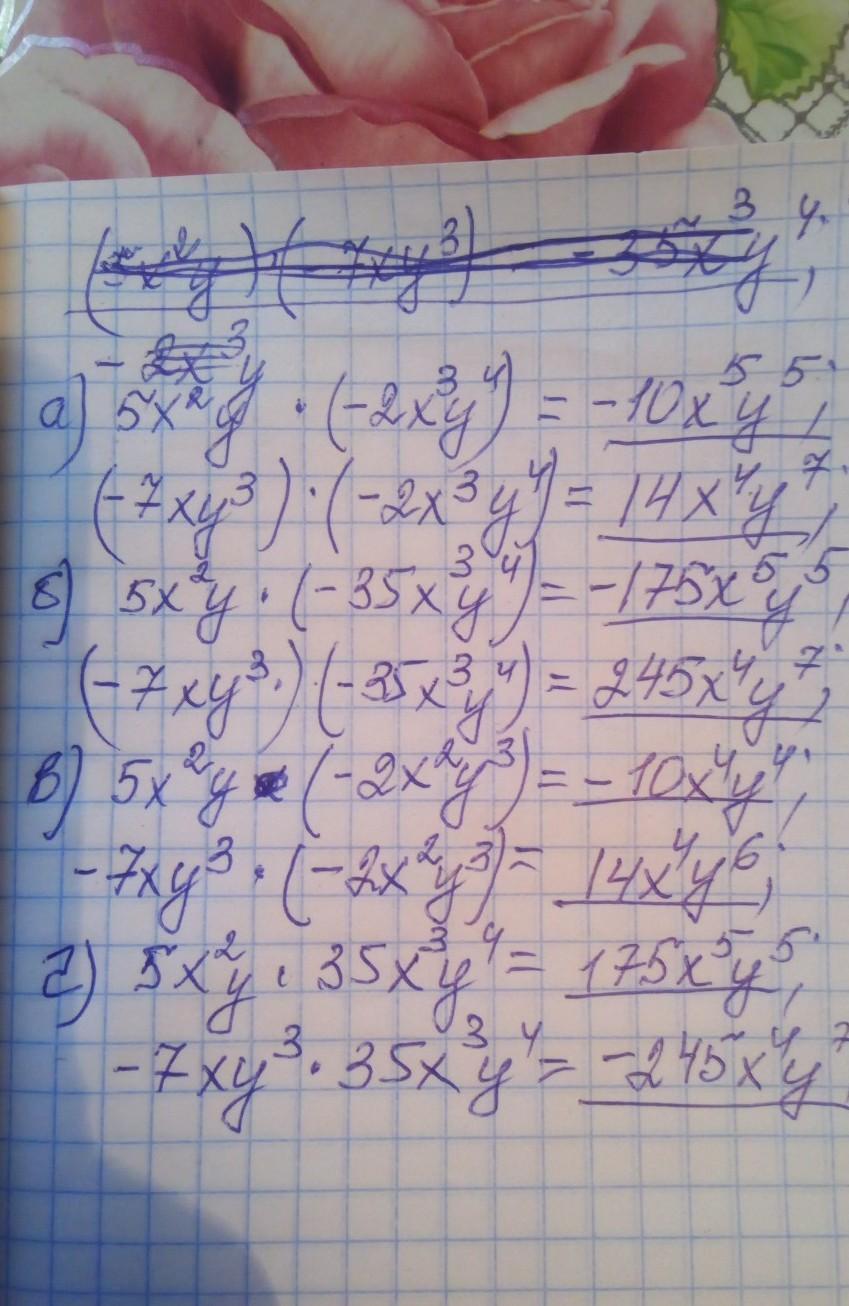 (5x²y)·(-7xy³) = -35x³y⁴;
- 2x³y
а) 5x²y · (-2x³y⁴) = -10x⁵y⁵;
(-7xy³)·(-2x³y⁴) = 14x⁴y⁷;
б) 5x²y · (-35x³y⁴) = -175x⁵y⁵;
(-7xy³)·(-35x³y⁴) = 245x⁴y⁷;
в) 5x²y · (-2x²y³) = -10x⁴y⁴;
-7xy³ · (-2x²y³) = 14x⁴y⁶;
г) 5x²y · 35x³y⁴ = 175x⁵y⁵;
-7xy³ · 35x³y⁴ = -245x⁴y⁷